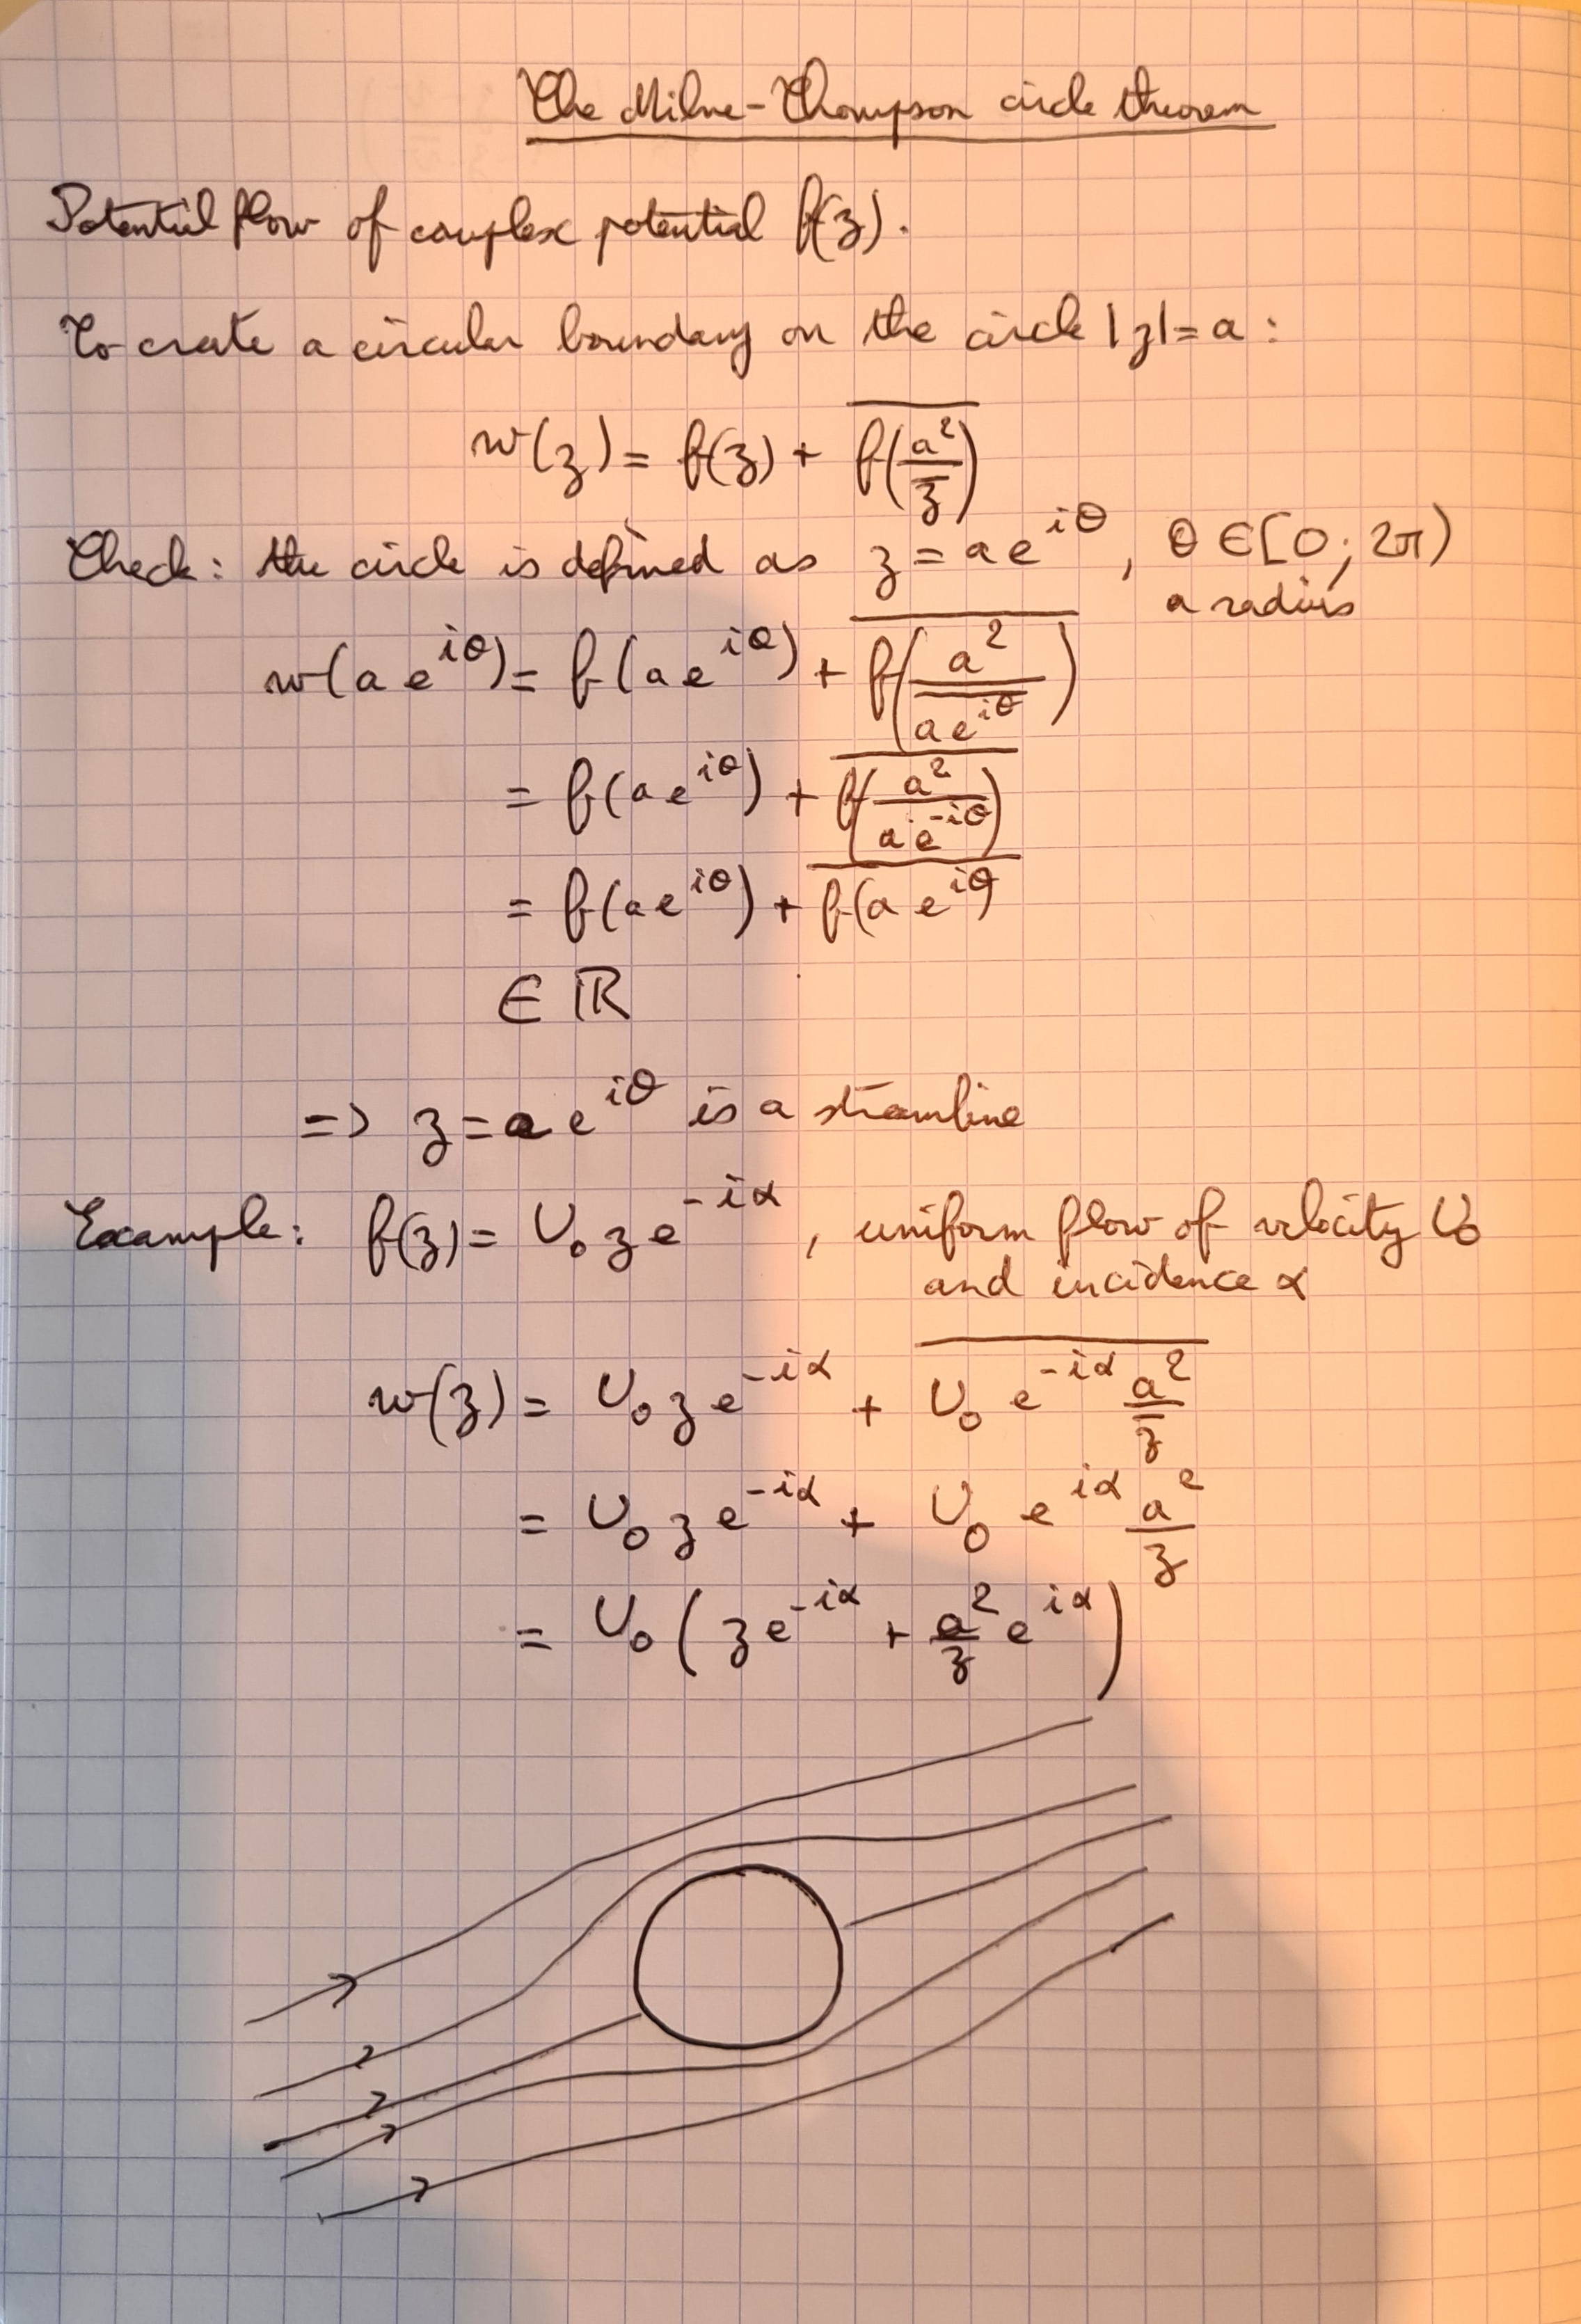 The Milne-Thompson circle theorem
Potential flow of complex potential f(z).
To create a circular boundary on the circle |z|=a :
w(z) = f(z) + \overline{f(\frac{a^2}{\overline{z}})}
Check: the circle is defined as z = a e^{iθ}, θ ∈ [0; 2π)
a radius
w(a e^{iθ}) = f(a e^{iθ}) + \overline{f(\frac{a^2}{\overline{a e^{iθ}}})}
= f(a e^{iθ}) + \overline{f(\frac{a^2}{a e^{-iθ}})}
= f(a e^{iθ}) + \overline{f(a e^{iθ})}
∈ ℝ
=> z = a e^{iθ} is a streamline
Example: f(z) = U_0 z e^{-iα}, uniform flow of velocity U_0
and incidence α
w(z) = U_0 z e^{-iα} + \overline{U_0 e^{-iα} \frac{a^2}{\overline{z}}}
= U_0 z e^{-iα} + U_0 e^{iα} \frac{a^2}{z}
= U_0 ( z e^{-iα} + \frac{a^2}{z} e^{iα} )